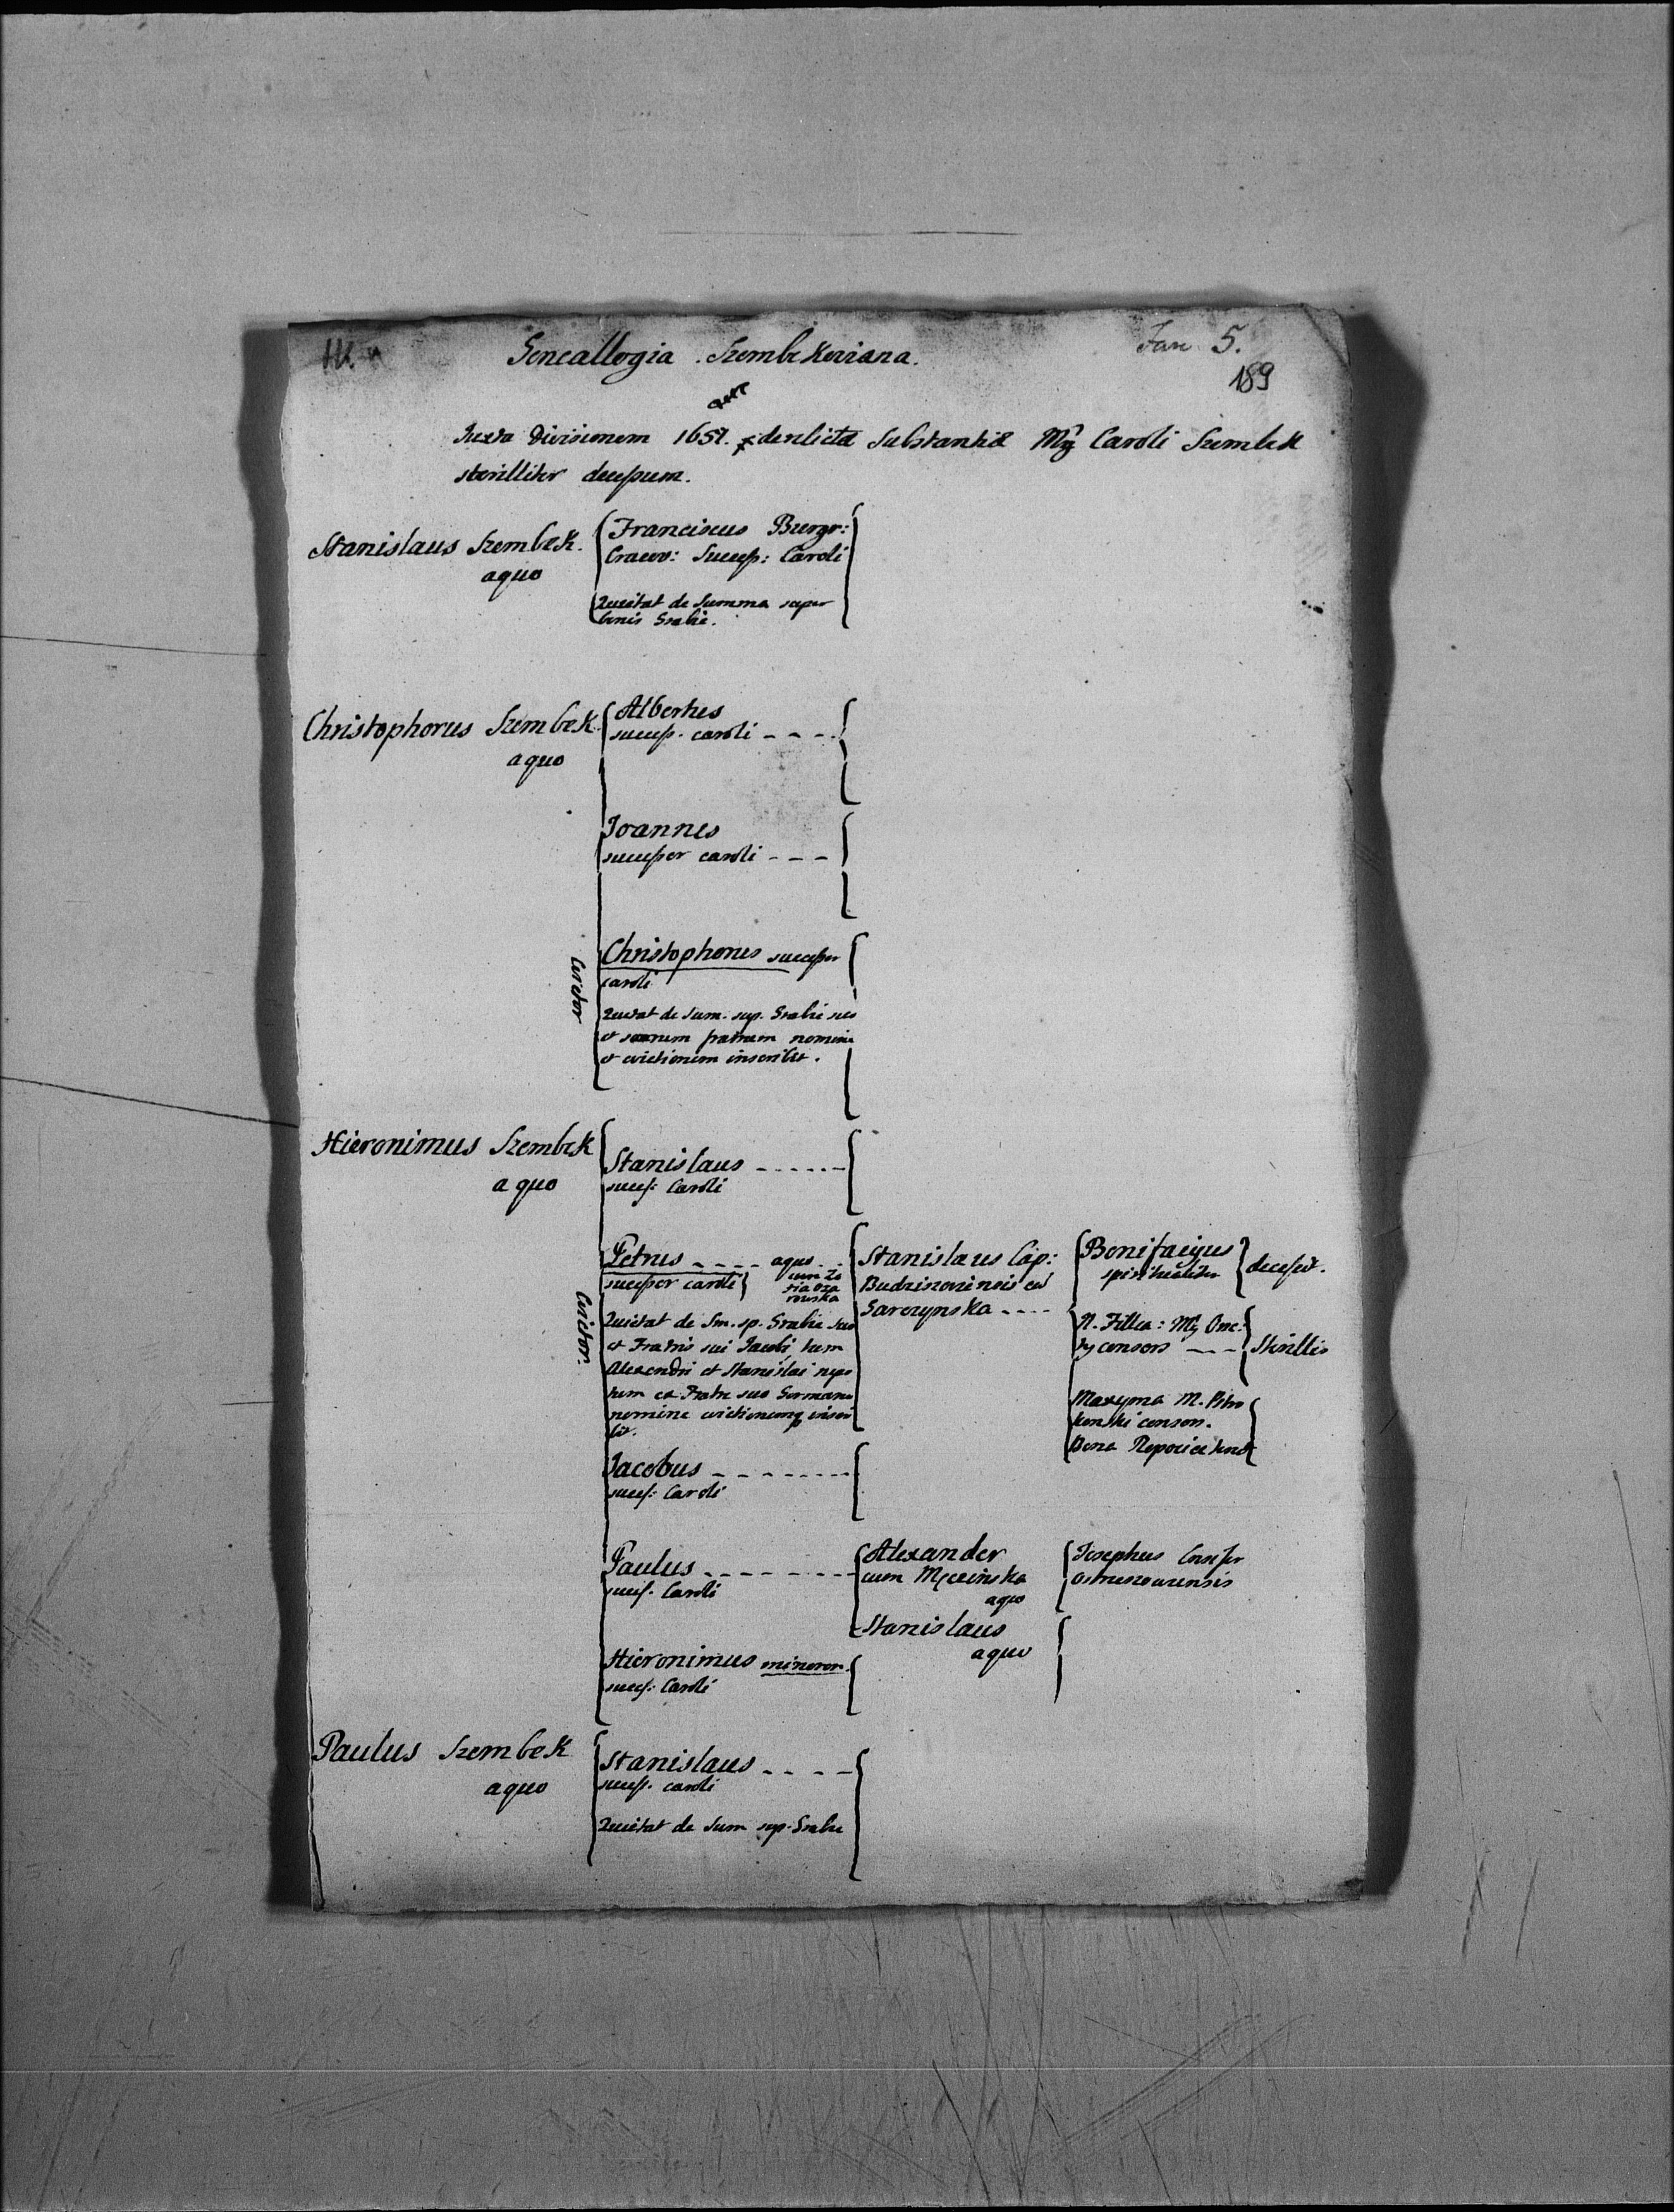 Fasc 5.
Genealłogia Szembekoviana.
189
Juxta Divisionem 1657. derelictæ Substantiæ Mg Caroli Szembek
sterilliter decessum.
Stanislaus Szembek.
a quo
Franciscus Burgr:
Cracov: Success: Caroli
Quietat de Summa super
bonis Grabie.
Christophorus Szembek
a quo
Albertus
success. caroli
Joannes
successor caroli
Christophorus successor
caroli
Quietat de Sum. sup. Grabie suo
et suorum fratrum nomine
et evictionem inscribit.
Evictor
Hieronimus Szembek
a quo
Stanislaus
success: Caroli
Petrus a quo
successor caroli
Quietat de Sm. sp. Grabie suo
et Fratris sui Jacobi, tum
Alexandri et Stanislai nepo
tum ex Fratre suo Germano
nomine evictionemq inscri
bit.
Evictor.
Stanislaus Cap:
Garczynska
Bonifacyus
spiritualiter
decessit.
N. Filia: Mg
consors
Sterillis
Maxyma M.
consors.
Bona
Jacobus
success: Caroli
Paulus
success. Caroli
Alexander
cum Męcinska
a quo
Josephus
Stanislaus
a quo
Hieronimus minoren.
success: Caroli
Paulus Szembek
a quo
Stanislaus
success. caroli
Quietat de Sum sup. Grabie